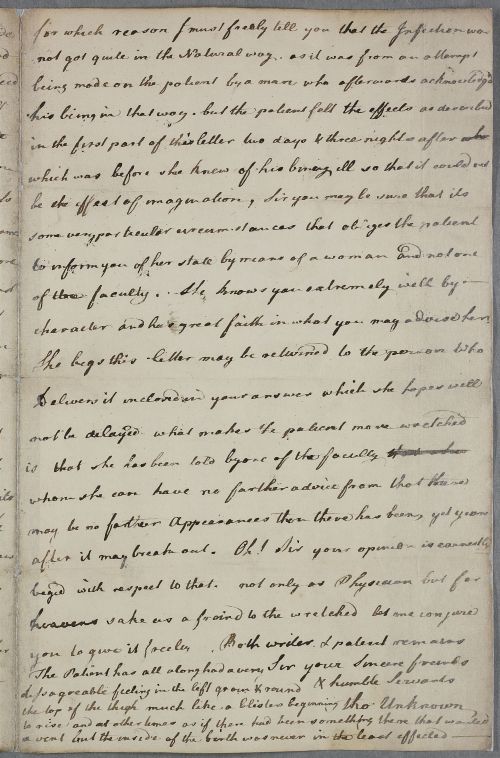 for which reason I must freely tell you that the Infection was
not got quite in the Natural way. as it was from an attempt
being made on the patient by a man who afterwards acknowledg'd
his being in that way. but the patient felt the effects as described
in the first part of this letter two days & three nights after
which was before she knew of his being ill so that it could not
be the effect of imagination, Sir you may be sure that its
some very particular circumstances that obliges the patient
to inform you of her state by means of a woman and not one
of the faculty. She knows you extremely well by
character and has great faith in what you may advise her
She begs this letter may be returned to the person who
Delivers it inclosed in your answer which she hopes will
not be delayed what makes the patient more wretched
is that she has been told by one of the faculty
whom she can have no farther advice from that there
may be no farther Appearances then there has been, yet years
after it may break out. Oh! Sir your opinion is earnestly
beg'd with respect to that. not only as Physician but for
heavens sake as a friend to the wretched let me conjure
you to give it freely. Both writer & patient remains
Sir your Sincere friends
& humble Servants
tho Unknown
The Patient has all along had a very
disagreable feeling in the left groin & round
the top of the thigh much like a blister beginning
to rise and at other times as if there had been something there that wanted
a vent but the inside of the birth was never in the least effected